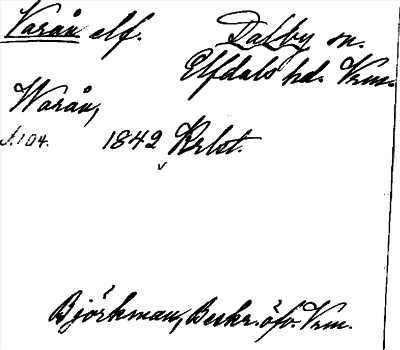 Varån elf. Dalby sn.
Elfdals hd. Vrm.
Warån,
s. 104. 1842 Krlst.
Björkman, Beskr. öfv. Vrm.